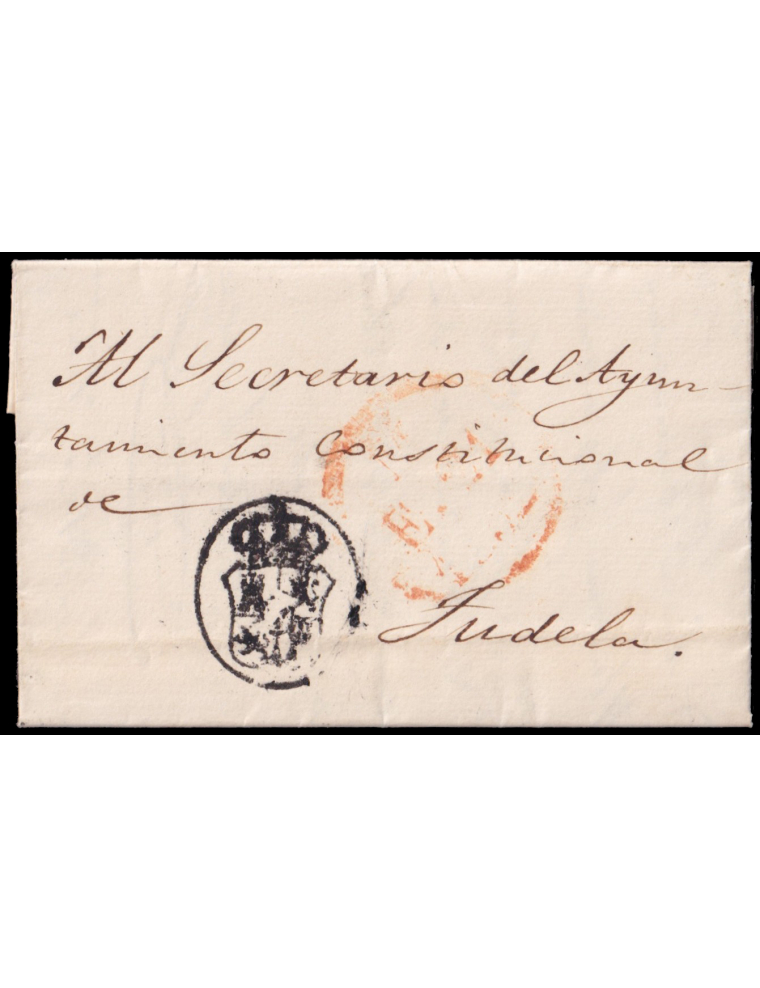 Al Secretario del Ayun-
tamiento Constitucional
de
Tudela.